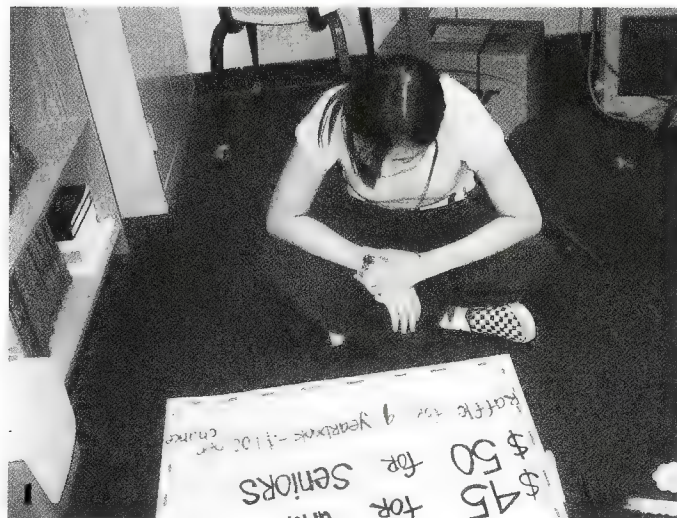 $45 FOR
$50 FOR SENIORS
Raffle for 1 yearbook - $1.00
chance
1